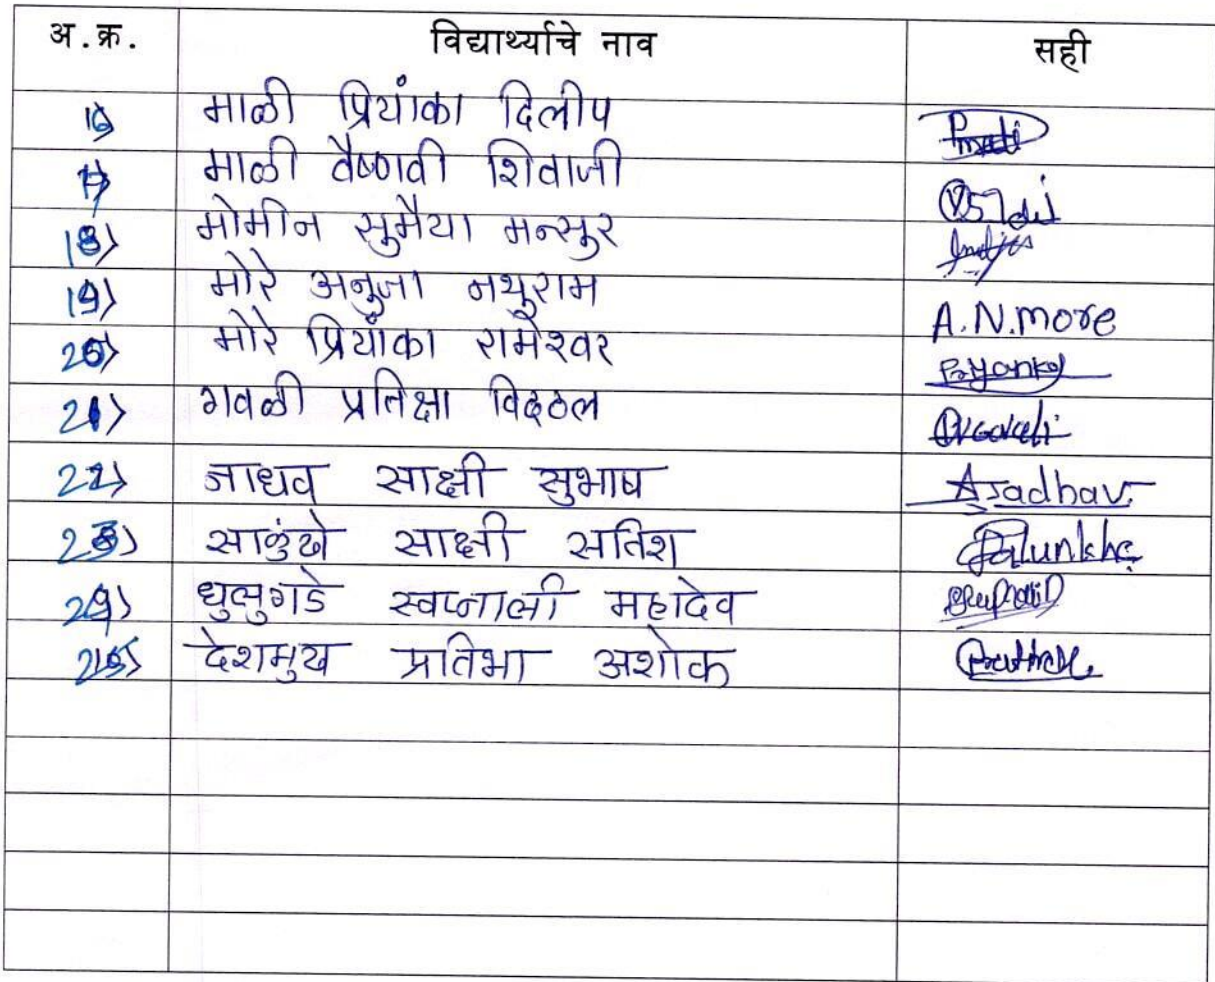 अ.क्र. विद्यार्थ्याचे नाव सही
16) माळी प्रियांका दिलीप
17) माळी वैष्णवी शिवाजी
18) मोमीन सुमैया मन्सुर
19) मोरे अनुजा नथुराम A.N.more
20) मोरे प्रियांका रामेश्वर Priyanka
21) गवळी प्रतिक्षा विठ्ठल
22) जाधव साक्षी सुभाष Jadhav
23) साळुंखे साक्षी सतिश Salunkhe
24) धुलुगडे स्वप्नाली महादेव
25) देशमुख प्रतिभा अशोक